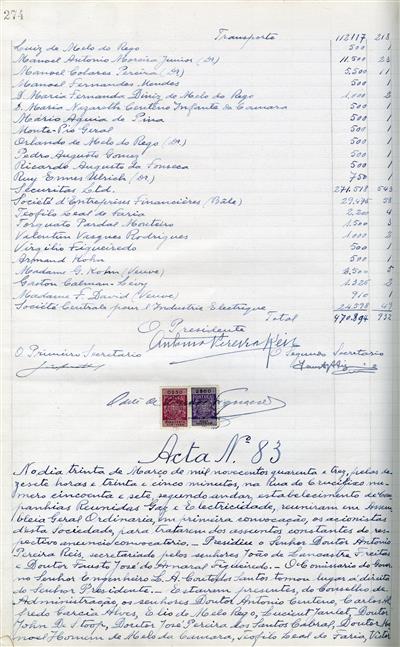 274
Transporte 112117 213
Luiz de Melo do Rego 500 1
Manoel Antonio Moreira Junior (Dr) 11.500 23
Manoel Colares Pereira (Dr) 5.500 11
Manoel Fernandes Mendes 500 1
D. Maria Fernanda Diniz de Melo do Rego 1.000 2
D. Maria Nazareth Centeno Infante da Camara 500 1
Mário Aguia de Pina 500 1
Monte-Pio Geral 500 1
Orlando de Melo do Rego (Dr) 500 1
Pedro Augusto Gomez 500 1
Ricardo Augusto da Fonseca 500 1
Ruy Ennes Ulrich (Dr) 750 1
Securitas Ltd. 271.518 543
Société d'Entreprises Financières (Bâle) 29.475 58
Teofilo Leal de Faria 2.200 4
Torquato Pardal Monteiro 1.500 3
Valentim Vasques Rodrigues 1.000 2
Virgilio Figueiredo 500 1
Armand Kohn 500 1
Madame G. Kohn (Veuve) 2.500 5
Gaston Calman-Levy 1.325 2
Madame F. David (Veuve) 910 1
Société Centrale pour l'Industrie Electrique 24.598 49
Total 470.894 932
O Presidente
Antonio Pereira Reis
O Primeiro Secretario O Segundo Secretario
Acta N.º 83
No dia trinta de Março de mil novecentos quarenta e trez, pelas de-
zesete horas e trinta e cinco minutos, na Rua do Crucifixo nu-
mero cincoenta e sete, segundo andar, estabelecimento de Com-
panhias Reunidas Gaz e Electricidade, reuniram em Assem-
bleia Geral Ordinaria, em primeira convocação, os acionistas
desta Sociedade, para tratarem dos assuntos constantes do res-
pectivo anuncio convocatorio. - Presidiu o Senhor Doutor Antonio
Pereira Reis, secretariado pelos senhores João de Lancastre Freitas
e Doutor Fausto José do Amaral Figueiredo. - O Comissario do Gover-
no Senhor Engenheiro L. A. Couto dos Santos tomou logar á direita
do Senhor Presidente. - Estavam presentes, do Conselho de
Administração, os senhores Doutor Antonio Centeno, Carlos Al-
fredo Garcia Alves, Elio de Melo Rego, Lucient Jantet, Doutor
John D. Stoop, Doutor José Pereira dos Santos Cabral, Doutor Ma-
noel Homem de Melo da Camara, Teofilo Leal de Faria, Victor